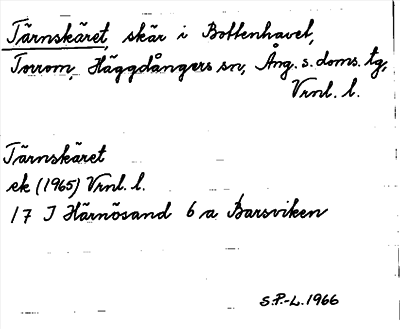 Tärnskäret, skär i Bottenhavet,
Torrom, Häggdångers sn, Ång. s. doms. tg,
Vrnl. l.
Tärnskäret
ek (1965) Vrnl. l.
17 I Härnösand 6 a Barsviken
S.P.-L. 1966